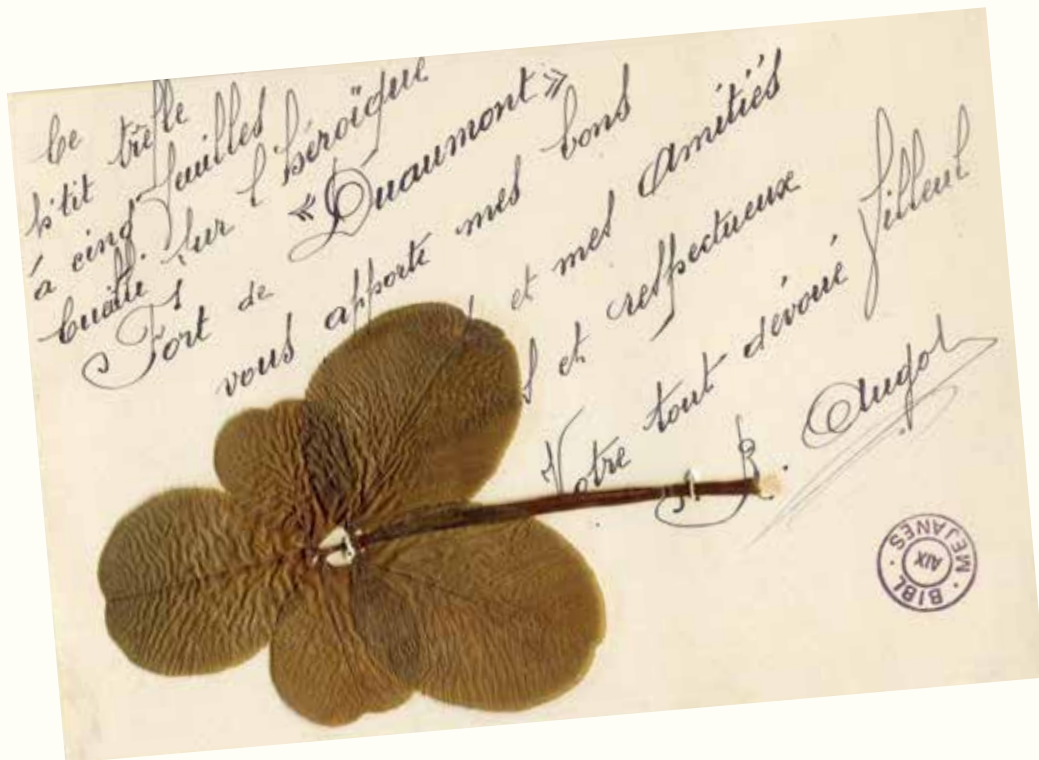 Ce
p'tit trèfle
à cinq feuilles
Cueilli sur l'héroïque
Fort de « Douaumont »
vous apporte mes bons
et mes Amitiés
et respectueux
Votre tout dévoué filleul
B.
BIBL. MEJANES
AIX